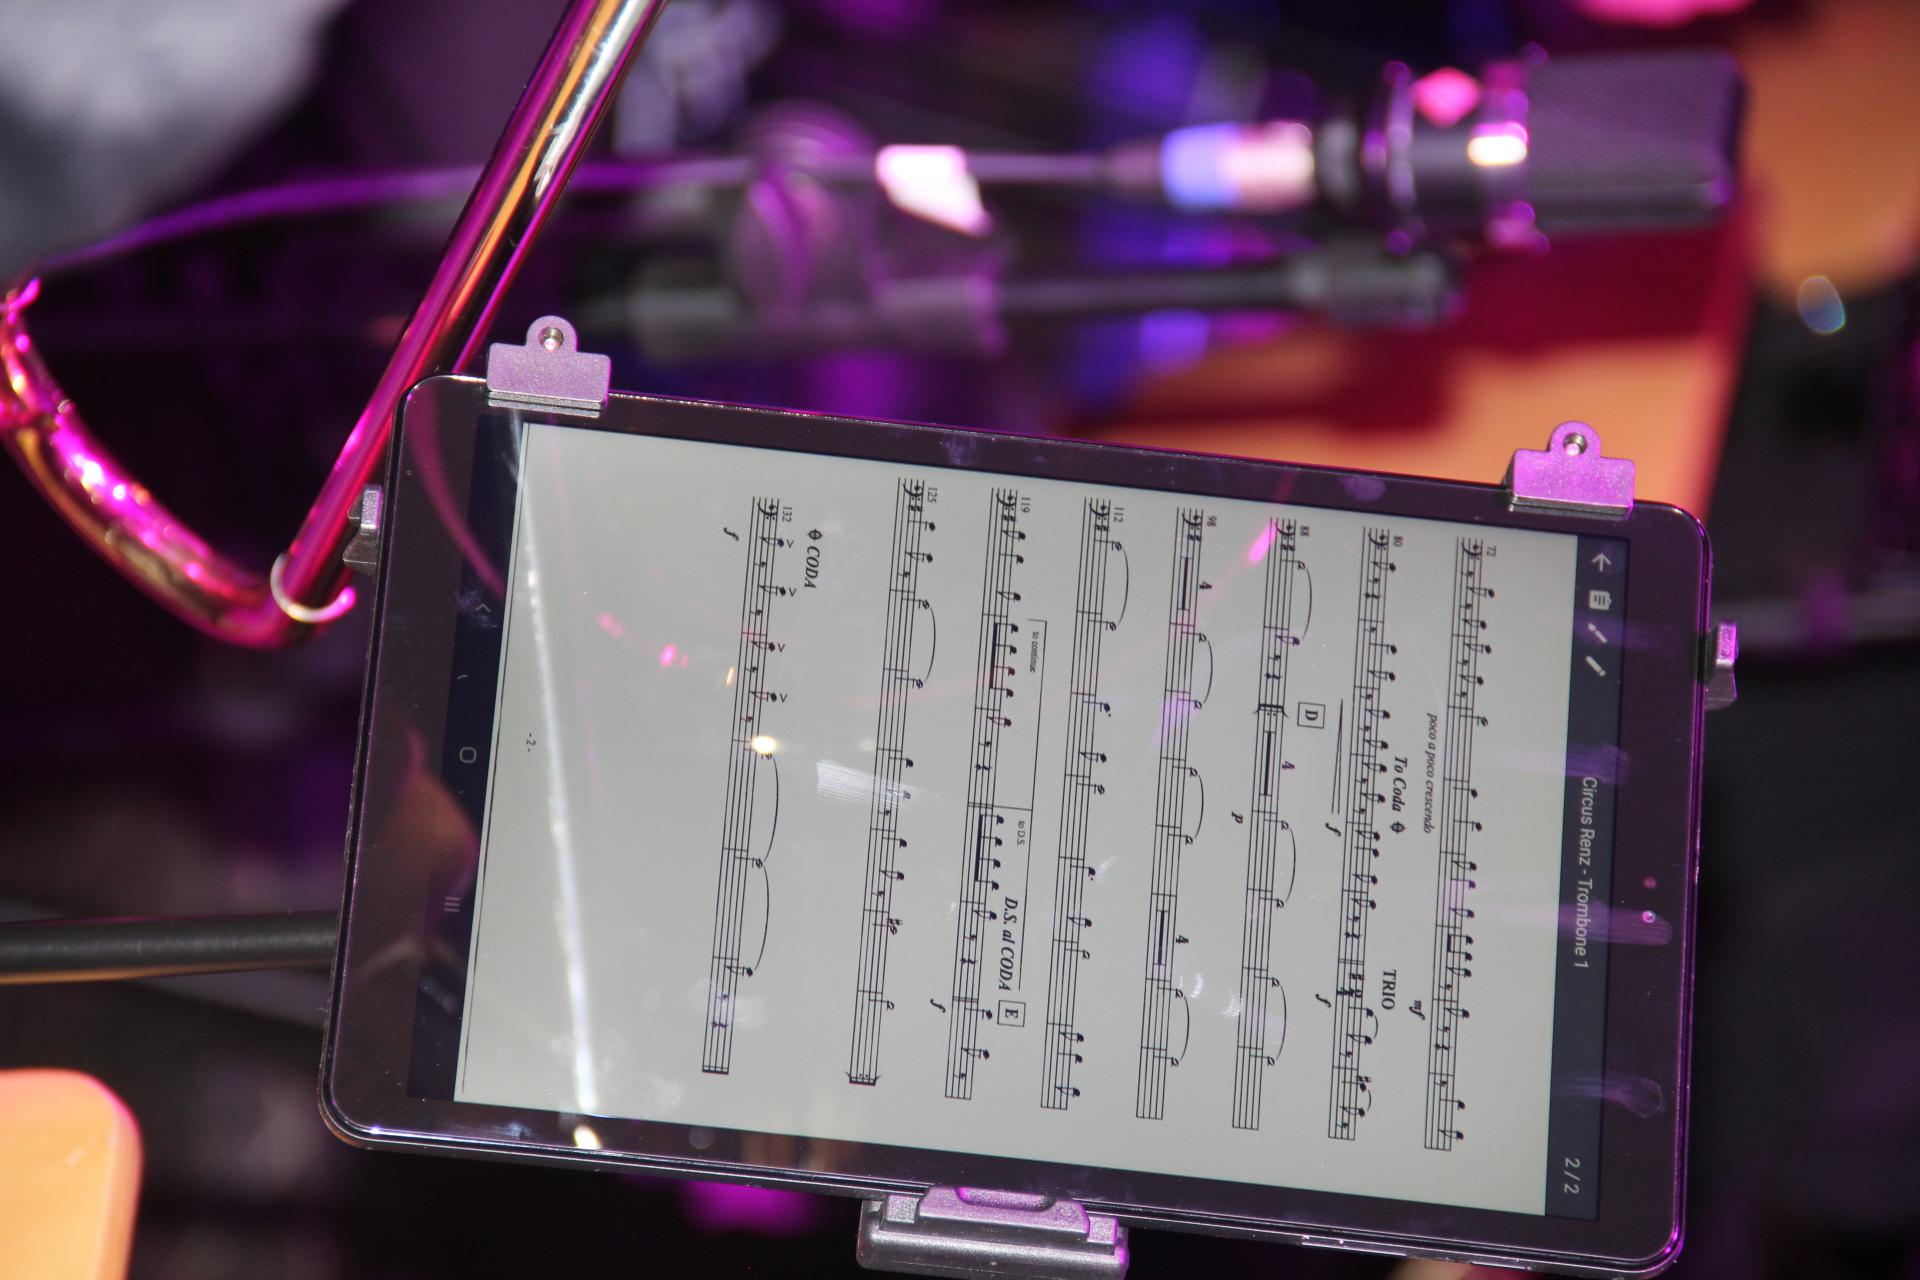 Circus Renz - Trombone 1
2 / 2
72
poco a poco crescendo
mf
80
To Coda
TRIO
f
f
88
D
4
p
98
4
4
112
119
to continue
to D.S.
D.S. al CODA
E
f
125
CODA
132
f
- 2 -